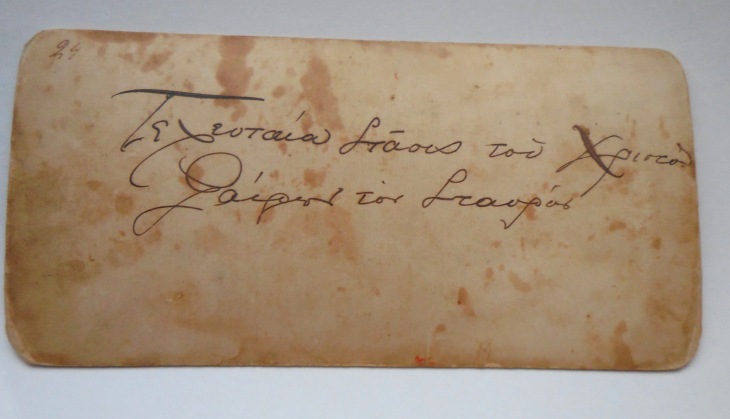 24
Τελευταία Στάσις τοῦ Χριστοῦ
αίρων τὸν Σταυρόν